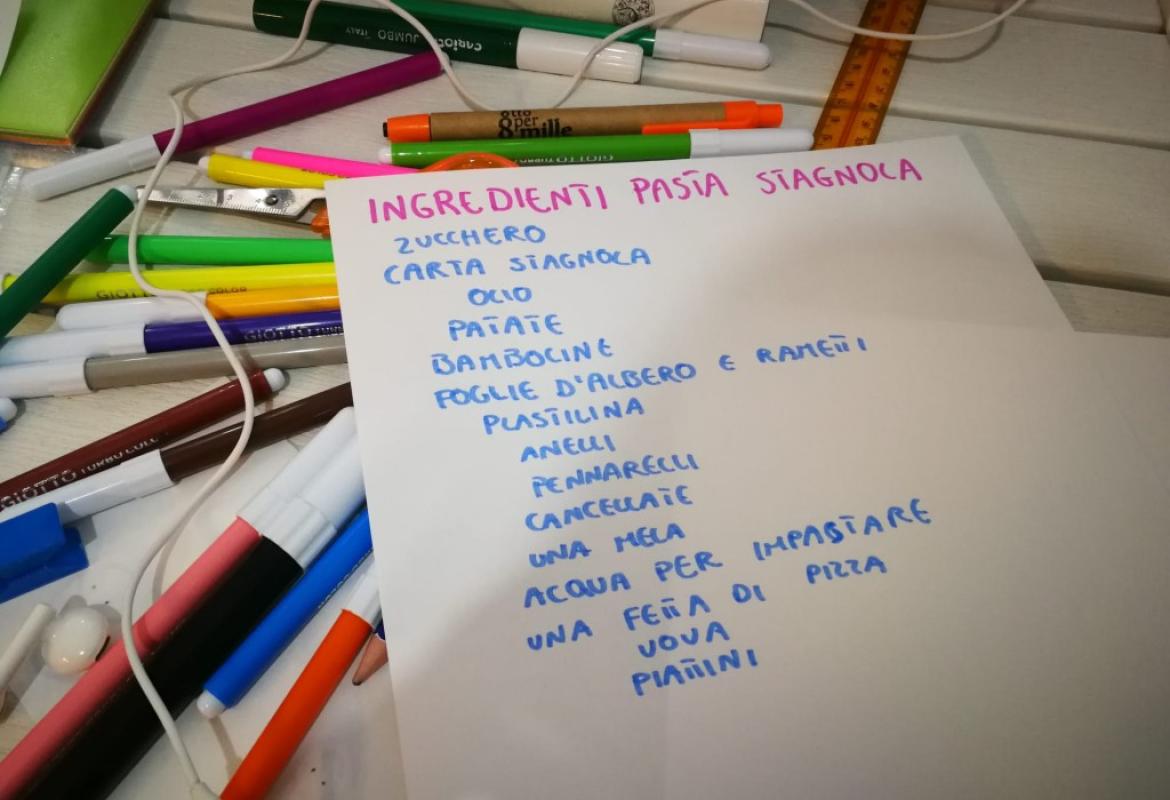 CARIOCA JUMBO ITALY
8
otto
per
mille
GIOTTO TURBO
INGREDIENTI PASTA STAGNOLA
ZUCCHERO
CARTA STAGNOLA
OLIO
PATATE
BAMBOLINE
FOGLIE D'ALBERO E RAMETTI
PLASTILINA
ANELLI
PENNARELLI
CANCELLATE
UNA MELA
ACQUA PER IMPASTARE
UNA FETTA DI PIZZA
UOVA
PIATTINI
GIOTTO COLOR
GIOTTO TURBO
GIOTTO TURBO COLOR